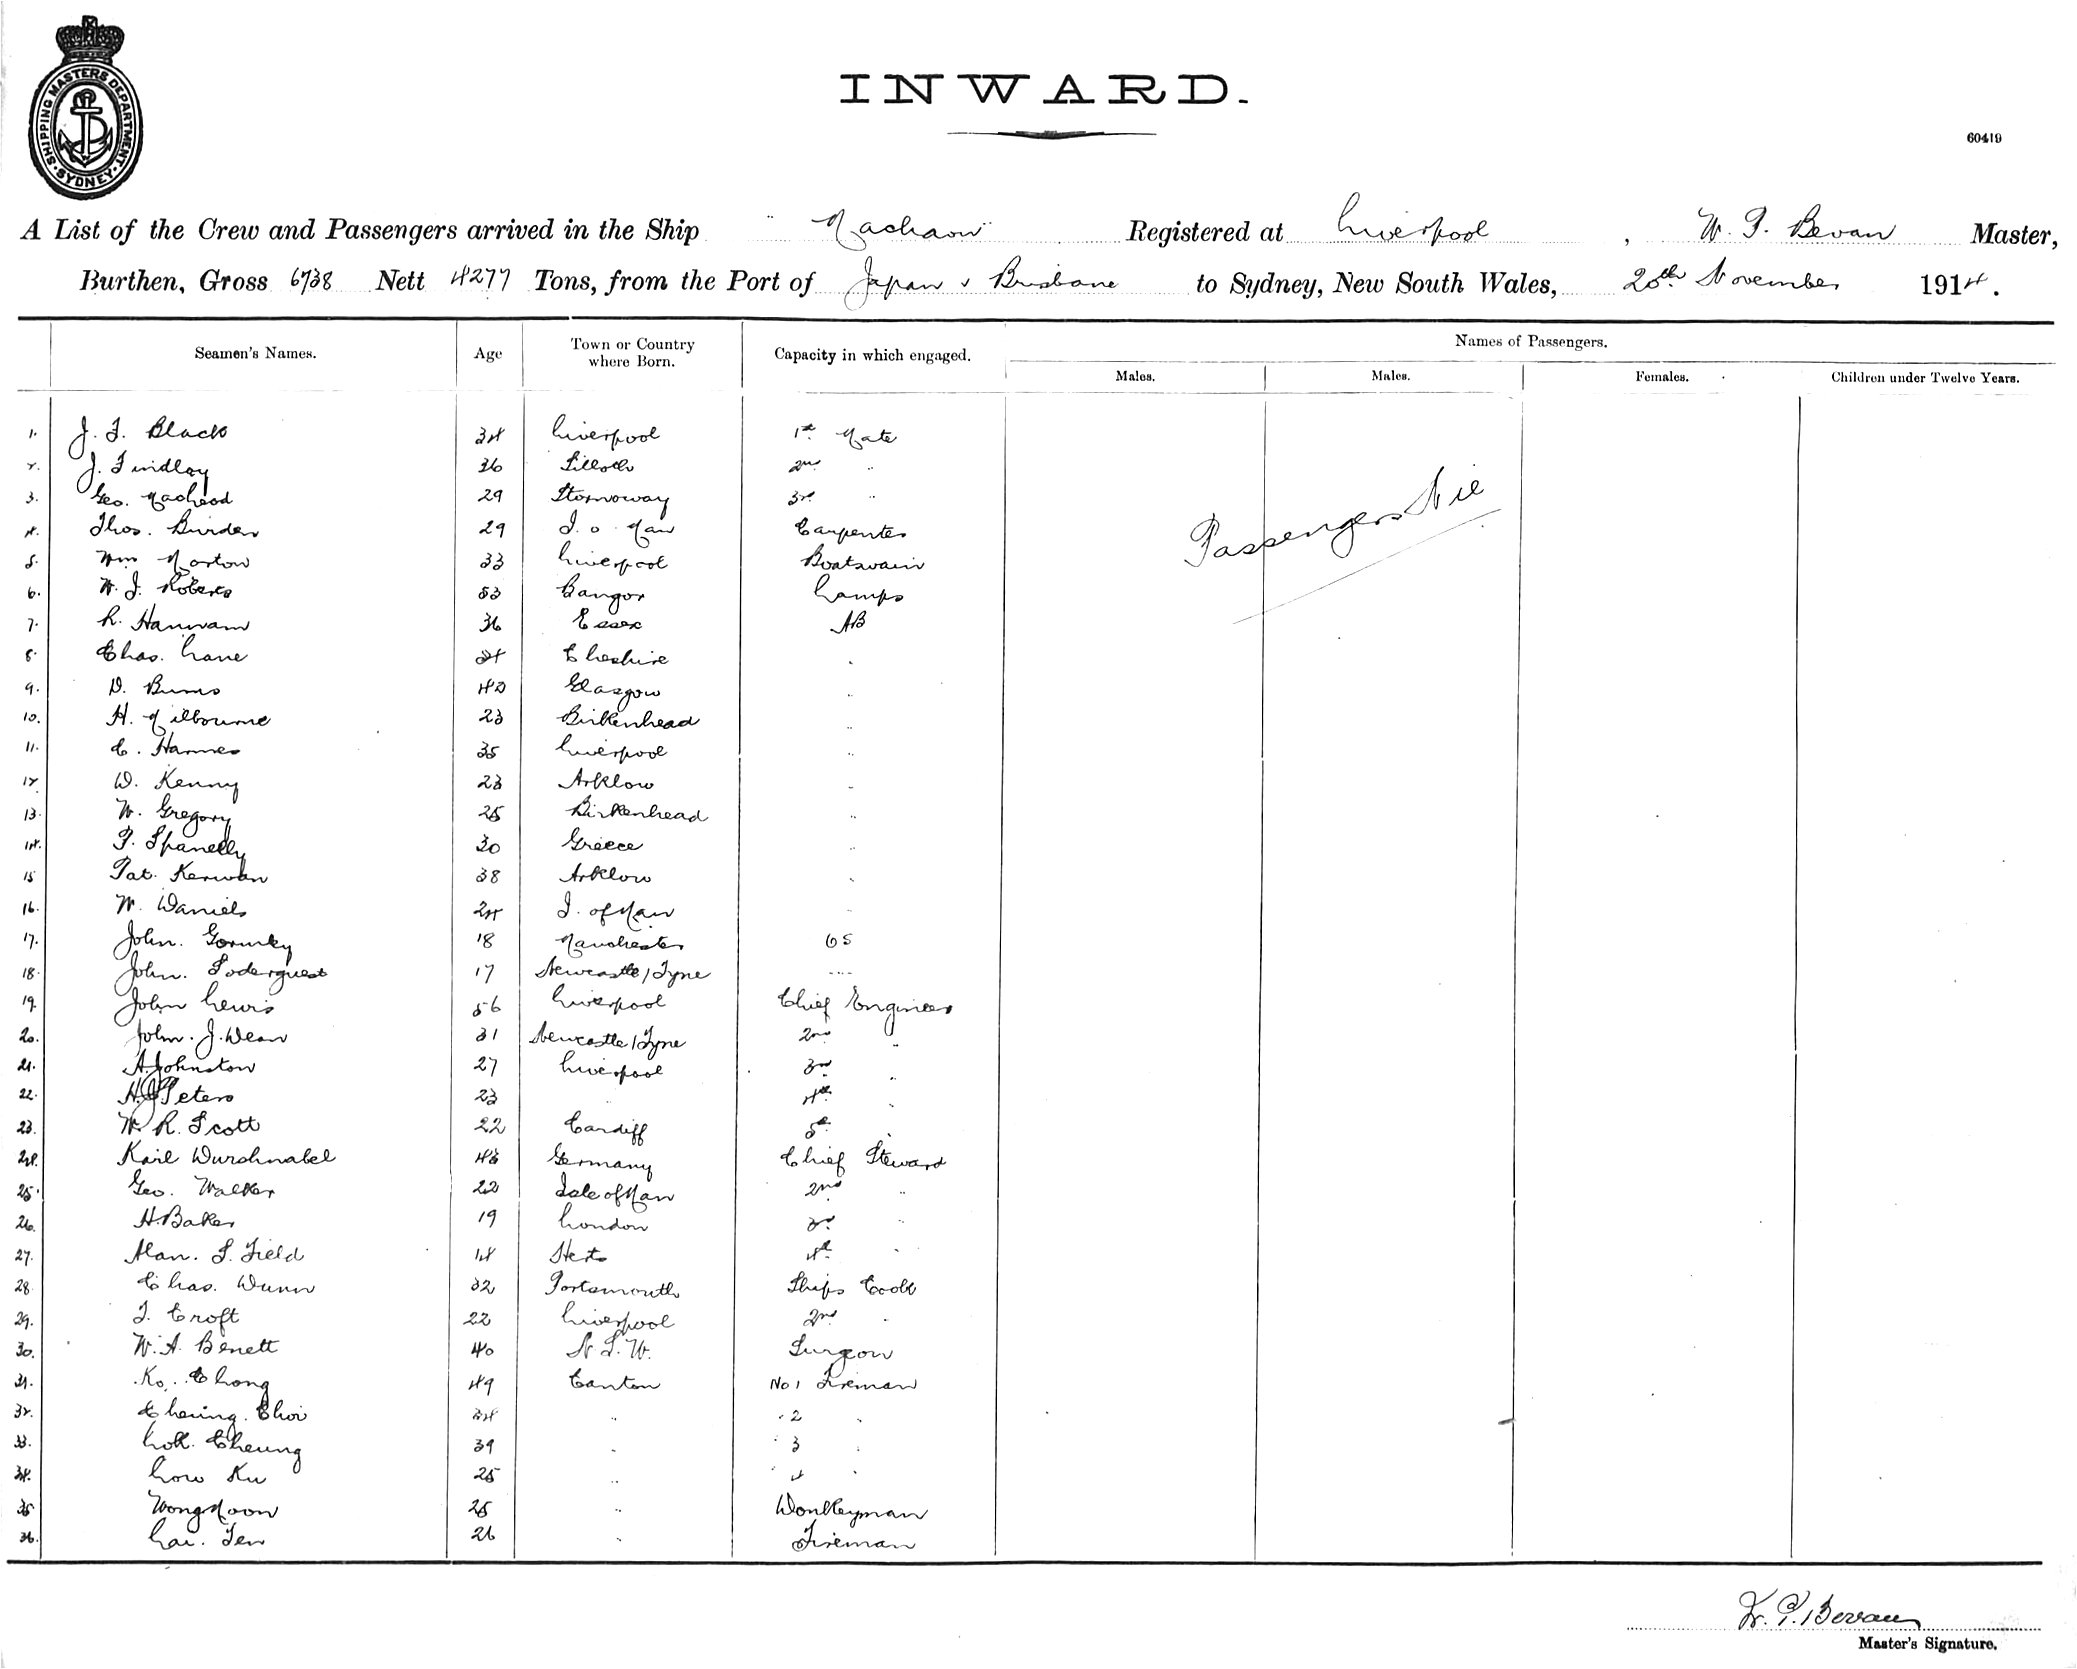 SHIPPING MASTERS DEPARTMENT · SYDNEY ·
INWARD.
60419
A List of the Crew and Passengers arrived in the Ship "Machaon" Registered at Liverpool, W. P. Bevan Master,
Burthen, Gross 6738 Nett 4277 Tons, from the Port of Japan & Brisbane to Sydney, New South Wales, 20th November 1914.
Seamen's Names. Age Town or Country where Born. Capacity in which engaged. Names of Passengers.
Males. Males. Females. Children under Twelve Years.
Passengers Nil
1. J. F. Black 34 Liverpool 1st Mate
2. J. Findlay 36 Silloth 2nd "
3. Geo. Macleod 29 Stornoway 3rd "
4. Thos. Burden 29 I. o Man Carpenter
5. Wm Morton 33 Liverpool Boatswain
6. W. J. Roberts 53 Bangor Lamps
7. L. Hannam 36 Essex AB
8. Chas. Lane 24 Cheshire "
9. D. Burns 40 Glasgow "
10. H. Milbourne 23 Birkenhead "
11. C. Hannes 35 Liverpool "
12. W. Kenny 23 Arklow "
13. W. Gregory 25 Birkenhead "
14. P. Spanelly 30 Greece "
15 Pat. Kerwan 38 Arklow "
16. W. Daniels 24 I. of Man "
17. John. Gormley 18 Manchester OS
18. John. Soderquest 17 Newcastle/Tyne "
19. John Lewis 56 Liverpool Chief Engineer
20. John. J. Dean 31 Newcastle/Tyne 2nd "
21. A. Johnston 27 Liverpool 3rd "
22. H. Peters 23 " 4th "
23. W R. Scott 22 Cardiff 5th "
24. Karl Wurshnabel 43 Germany Chief Steward
25. Geo. Walker 22 Isle of Man 2nd "
26. H. Baker 19 London 3rd "
27. Alan. S. Field 18 Herts 4th "
28. Chas. Dunn 32 Portsmouth Ships Cook
29. J. Croft 22 Liverpool 2nd "
30. W. A. Benett 40 N. S. W. Surgeon
31. Ko. Chong 49 Canton No 1 Fireman
32. Cheung. Choi 34 " " 2 "
33. Lok. Cheung 39 " " 3 "
34. Low Ku 25 " " 4 "
35 Wong Moon 25 " Donkeyman
36. Lai. Ten 26 " Fireman
W. P. Bevan
Master's Signature.